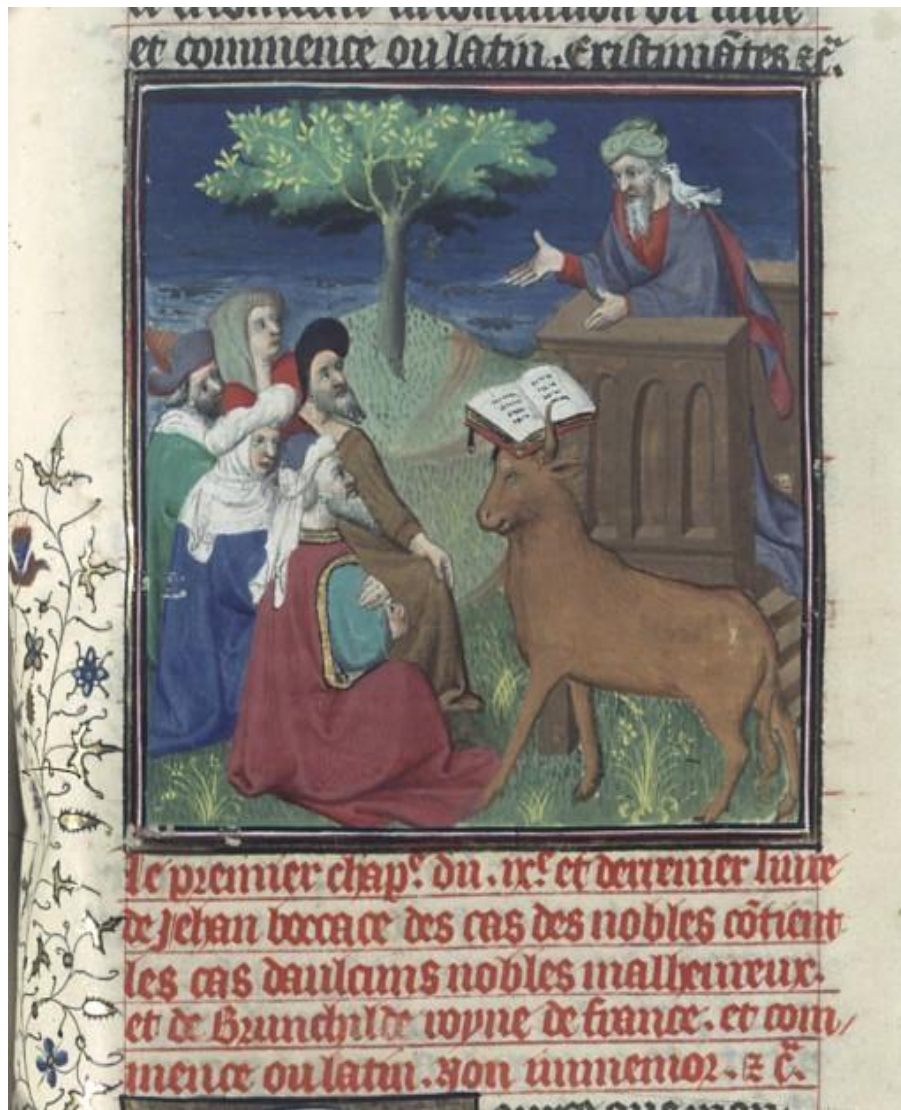 et commence ou latin. Existimãtes &c̃.
Le premier chap.e du .ix.e et derrenier livre
de Jehan boccace des cas des nobles cõtient
les cas daulcuns nobles malheureux.
et de Brunchilde royne de france. et com/
mence ou latin. Non inmemor. & c̃.